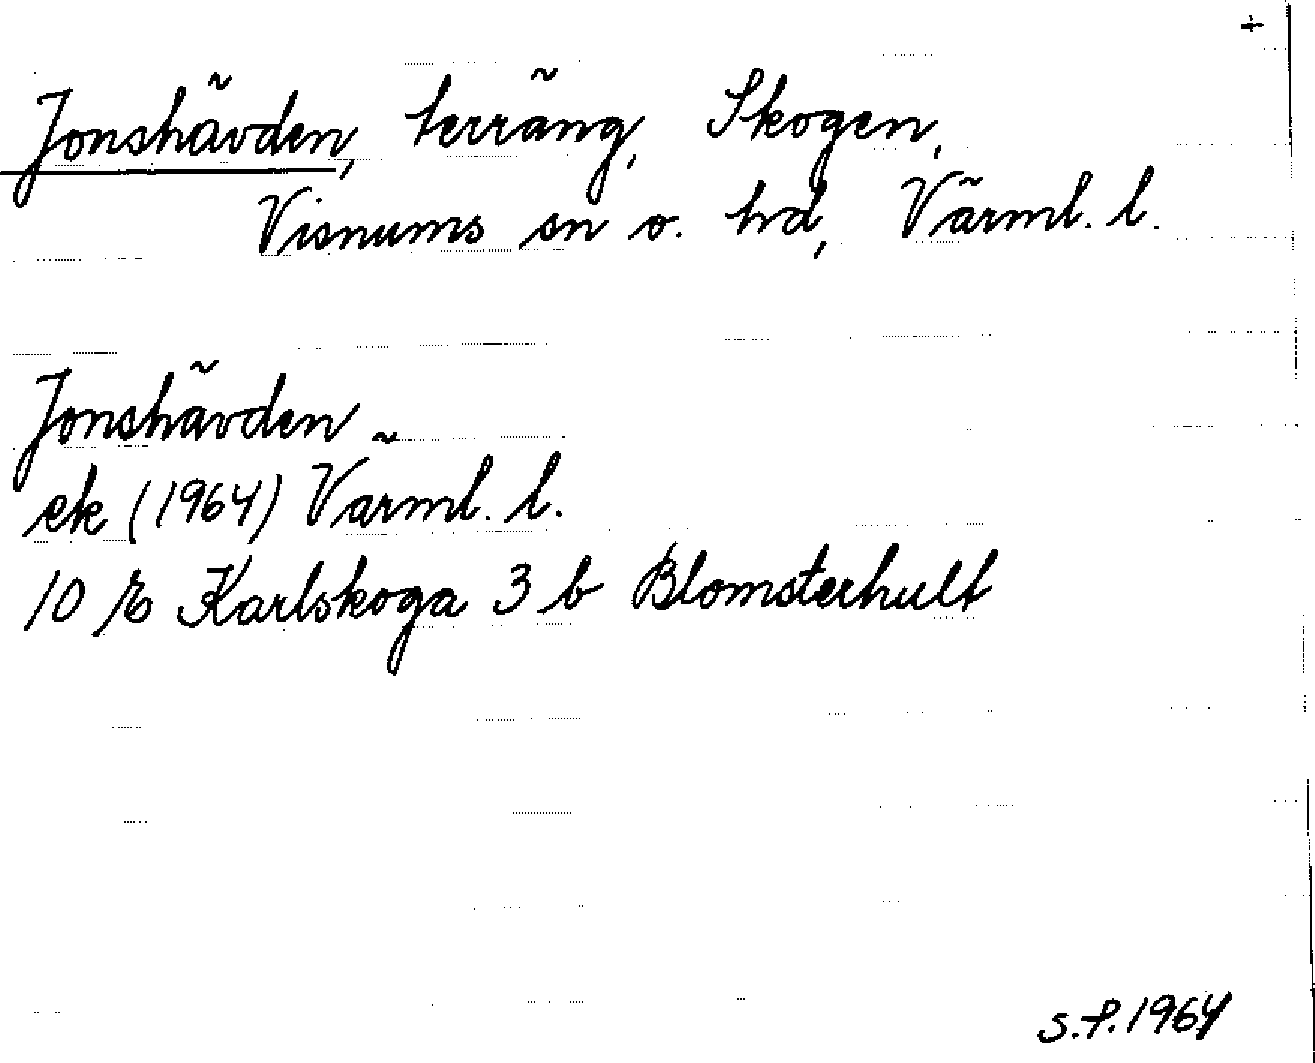 +
Jonshävden, terräng, Skogen,
Visnums sn o. hd, Värml. l.
Jonshävden
ek (1964) Värml. l.
10 E Karlskoga 3 b Blomsterhult
S.P. 1964